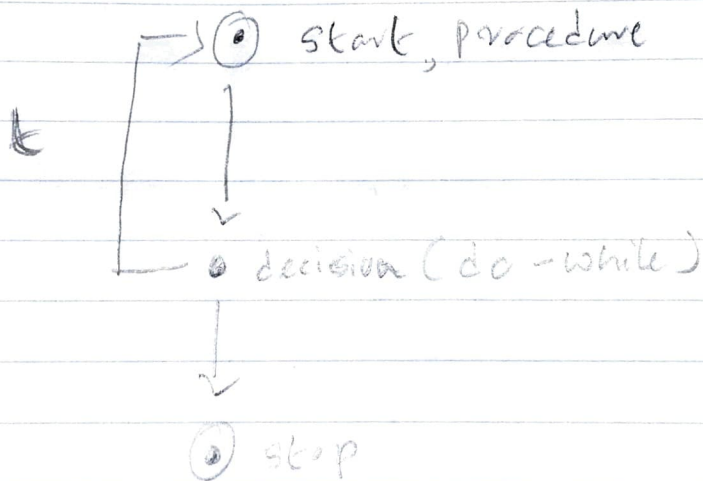 start, procedure
t
decision (do-while)
stop